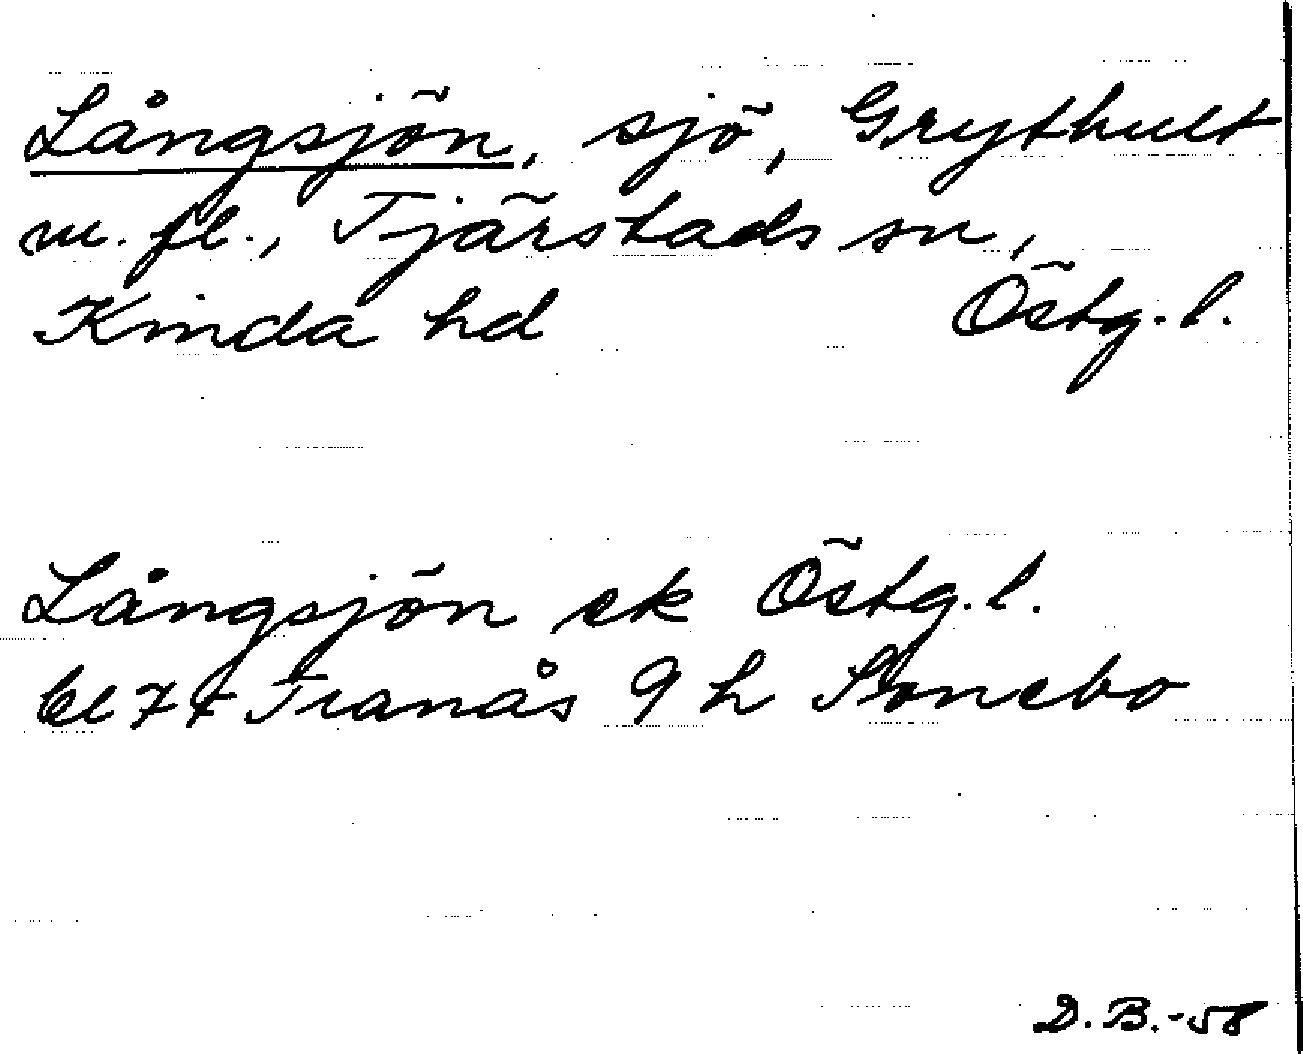 Långsjön, sjö, Grythult
m. fl., Tjärstads sn,
Kinda hd Östg. l.
Långsjön ek Östg. l.
bl 77 Tranås 9 h Sonebo
D. B. -58